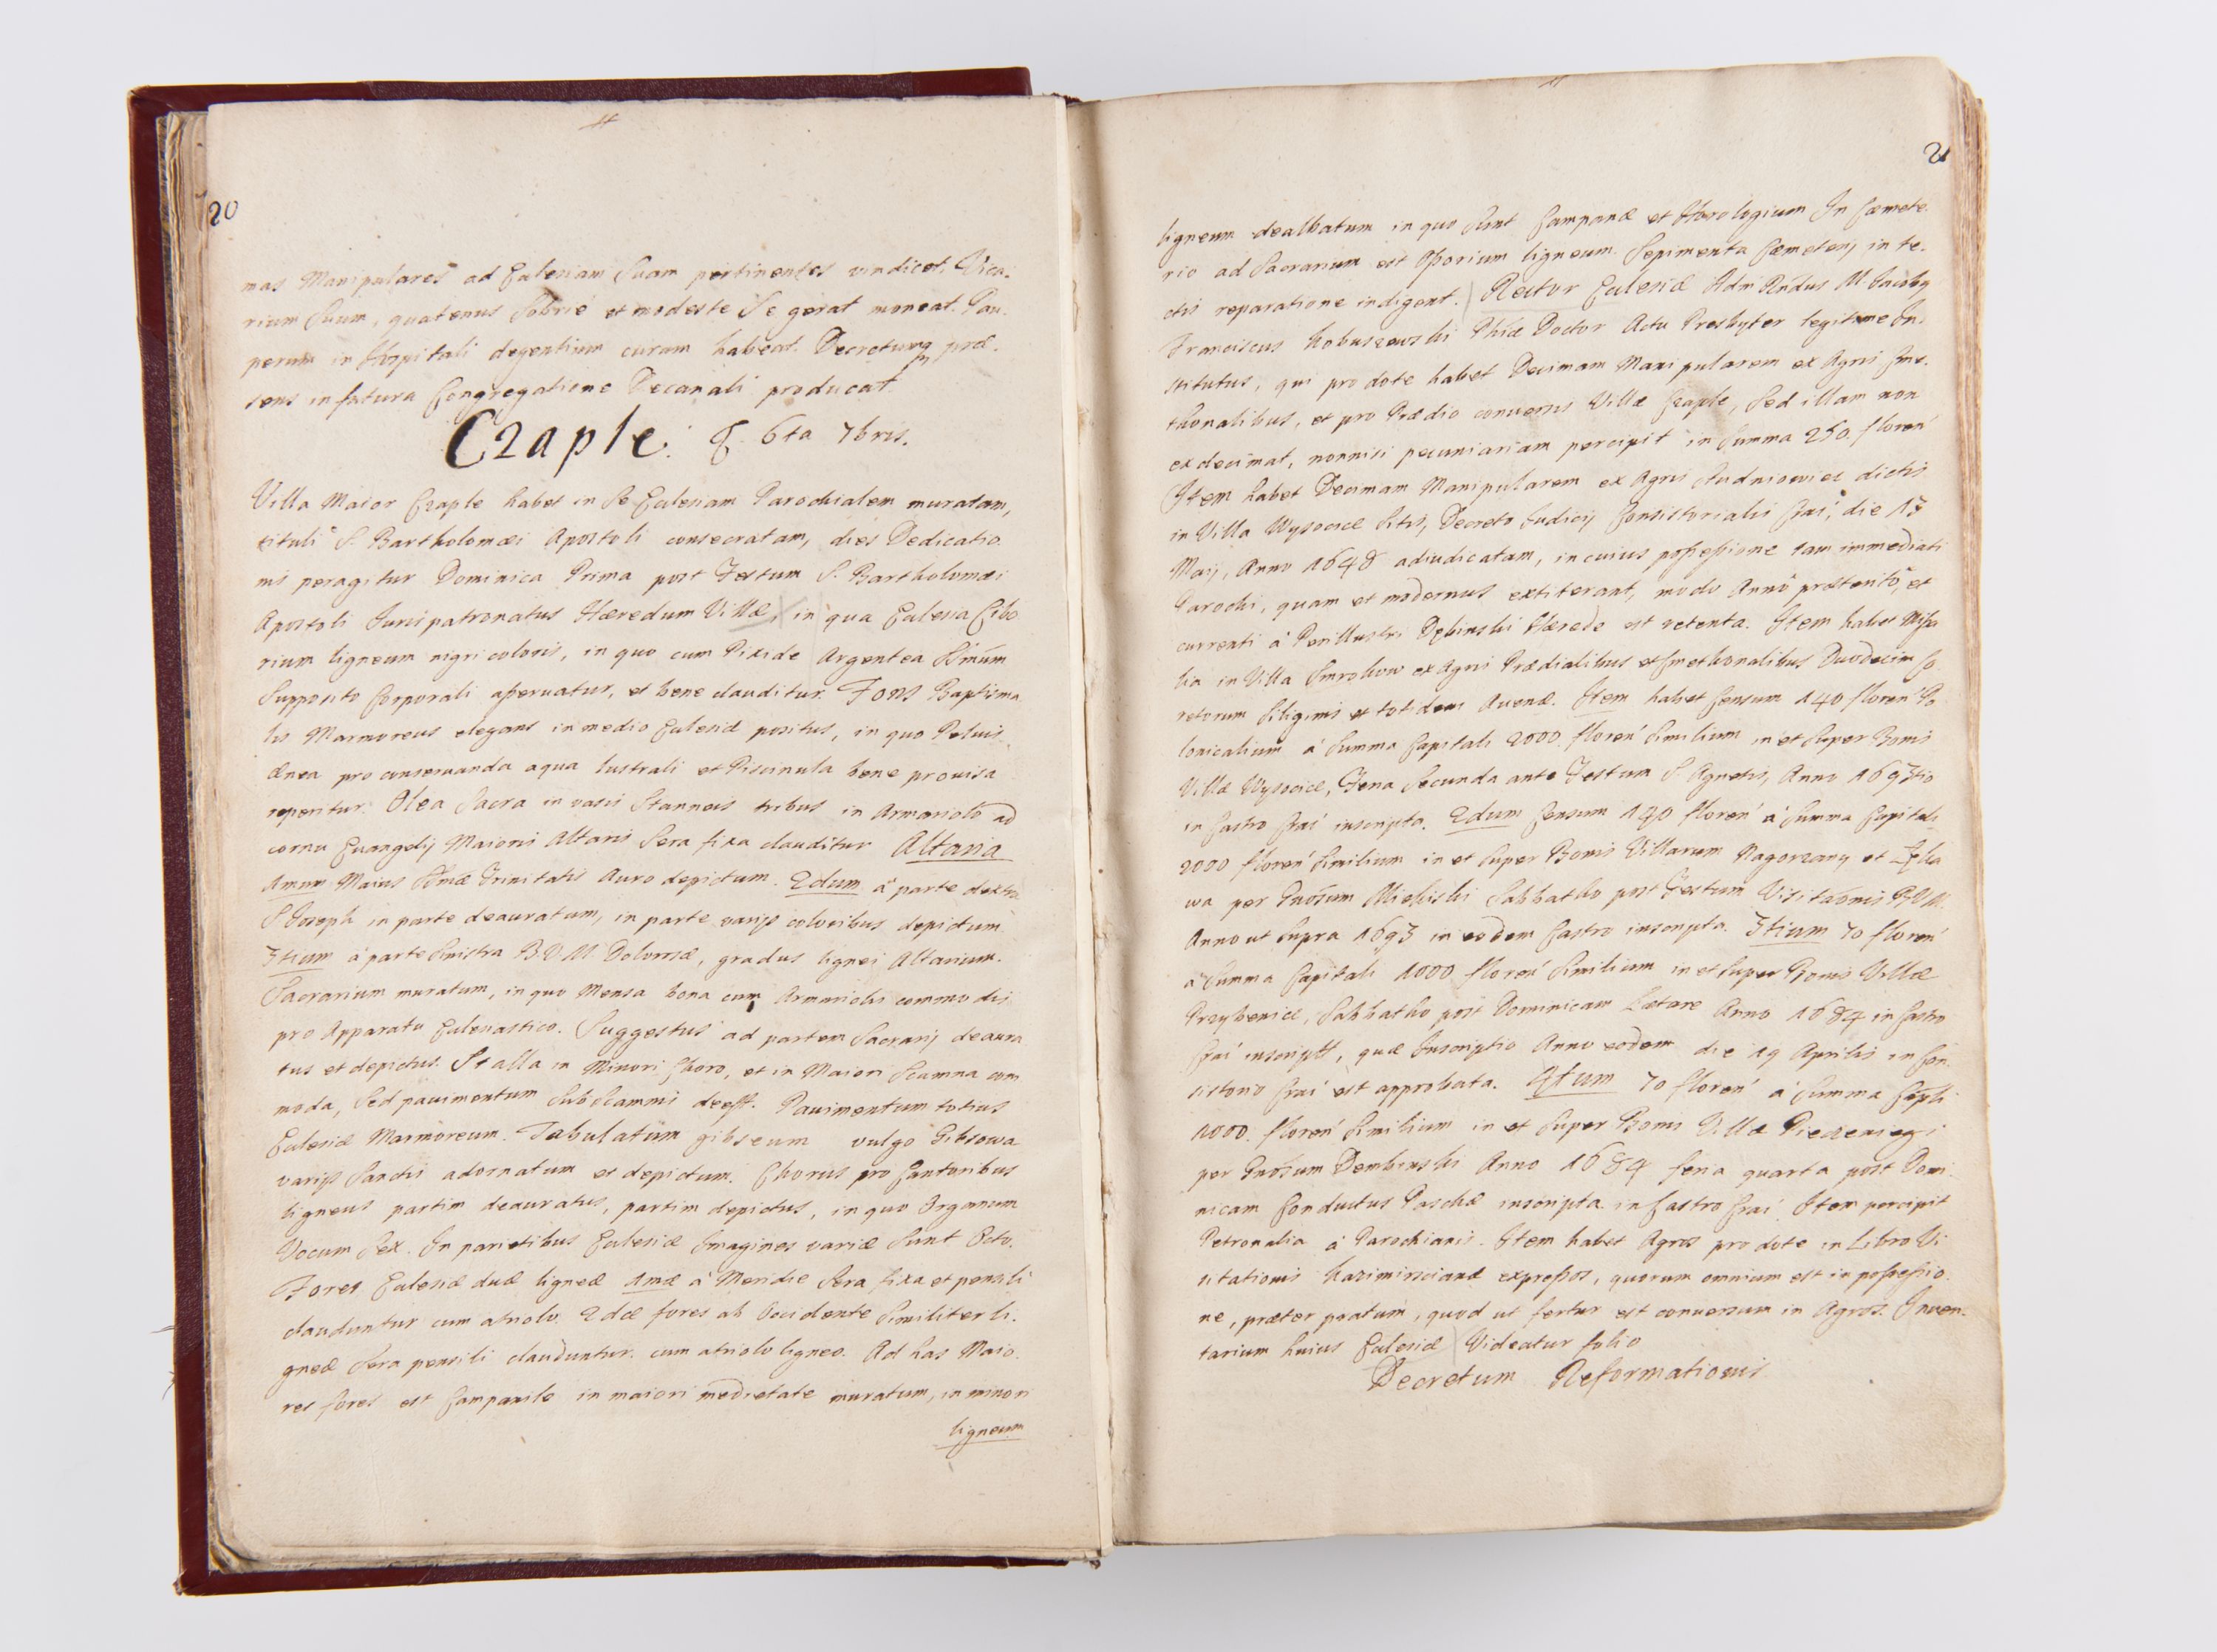 20
mas Manipulares ad Eclesiam Suam pertinentes vindicet. Vica-
rium Suum, quatenus Sobriè et modeste Se gerat moneat. Pau-
perum in Hospitali degentium curam habeat. Decretumq præ-
sens in futura Congregatione Decanali producat
Czaple. 6ta 7bris.
Villa Maior Czaple habet in Se Eclesiam Parochialem muratam,
tituli S. Bartholomæi Apostoli consecratam, dies Dedicatio-
nis peragitur Dominica Prima post Festum S. Bartholomæi
Apostoli Jurispatronatus Hæredum Villæ, in qua Eclesia Cibo
rium ligneum nigri coloris, in quo cum Pixide Argentea SSmum
Supposito Corporali asservatur, et bene clauditur. Fons Baptisma
lis Marmoreus elegans in medio Eclesiæ positus, in quo Peluis
ænea pro conseruanda aqua lustrali et Piscinula bene prouisa
reperitur. Olea Sacra in vasis Stanneis tribus in Armariolo ad
cornu Euangelij Maioris Altaris Sera fixa clauditur Altaria
1mum Maius SSmæ Trinitatis Auro depictum. 2dum à parte dextra
S Joseph in parte deauratum, in parte varijs coloribus depictum
3tium à parte Sinistra B.V.M. Dolorosæ, gradus lignei Altarium.
Sacrarium muratum, in quo Mensa bona cum Armariolis commodis
pro Apparatu Eclesiastico. Suggestus ad partem Sacrarij deaura
tus et depictus. Stalla in Minori Choro, et in Maiori Scamna com
moda, Sed pauimentum Sub Scamnis deest. Pauimentum totius
Eclesiæ Marmoreum. Tabulatum gibseum vulgo Gibsowa
varijs Sanctis adornatum et depictum. Chorus pro Cantoribus
ligneus partim deauratus, partim depictus, in quo Organum
Vocum Sex. In parietibus Eclesiæ Imagines variæ Sunt Octo.
Fores Eclesiæ duæ ligneæ 1mæ à Meridie Sera fixa et pensili
clauduntur cum atriolo. 2dæ fores ab Occidente Similiter li-
gneæ Sera pensili clauduntur. cum atriolo ligneo. Ad has Maio-
res fores est Campanile in maiori medietate muratum, in minori
ligneum
21
ligneum dealbatum in quo Sunt Campanæ et Horologium In Cæmete-
rio ad Sacrarium est Ossorium ligneum. Sepimenta Cæmeterij in te-
ctis reparatione indigent. Rector Eclesiæ Adm Rndus M. Jacobg
Franciscus Phiæ Doctor Actu Presbyter legitime In-
stitutus, qui pro dote habet Decimam Manipularem ex Agris Cme-
thonalibus, et pro Prædio conuersis Villæ Czaple, Sed illam non
ex decimat, nonnisi pecuniariam percipit in Summa 260. floren
Item habet Decimam Manipularem ex Agris Studniowiec dictis
in Villa Wysocice Sitis, Decreto Iudicij Consistorialis Crac, die 13
Maij, Anno 1648 adiudicatam, in cuius possessione tam immediati
Parochi, quam et modernus extiterant, modo Annò præteritò, et
currenti à Perillustri Dębinski Hærede est retenta. Item habet Missa
lia in Villa Smrokow ex Agris Prædialibus et Cmethonalibus Duodecim Co
retorum Siliginis et totidem Auenæ. Item habet Censum 140 floren Po
lonicalium à Summa Capitali 2000. floren Similium in et Super Bonis
Villæ Wysocice, Feria Secunda ante Festum S. Agnetis, Anno 1693tio
in Castro Crac inscripta. 2dum Censum 140 floren à Summa Capitali
2000 floren Similium in et Super Bonis Villarum Nagorzany et
wa per Gnosum Sabbatho post Festum Visitaonis B.V.M.
Anno ut Supra 1693 in eodem Castro inscripta. 3tium 70 floren
à Summa Capitali 1000 floren Similium in et Super Bonis Villæ
Przybenice, Sabbatho post Dominicam Lætare Anno 1684 in Castro
Crac inscripta, quæ Inscriptio Anno eodem die 19 Aprilis in Con-
sistorio Crac est approbata. 4tum 70 floren à Summa Capli
1000. floren Similium in et Super Bonis Villæ
per Gnosum Dembinski Anno 1684 feria quarta post Domi-
nicam Conductus Paschæ inscripta in Castro Crac. Item percipit
Petronalia à Parochianis. Item habet Agros pro dote in Libro Vi
sitationis Kazimirscianæ expressos, quorum omnium est in possessio-
ne, præter pratum, quod ut fertur est conuersum in Agros. Inuen-
tarium huius Eclesiæ Videatur folio
Decretum Reformationis